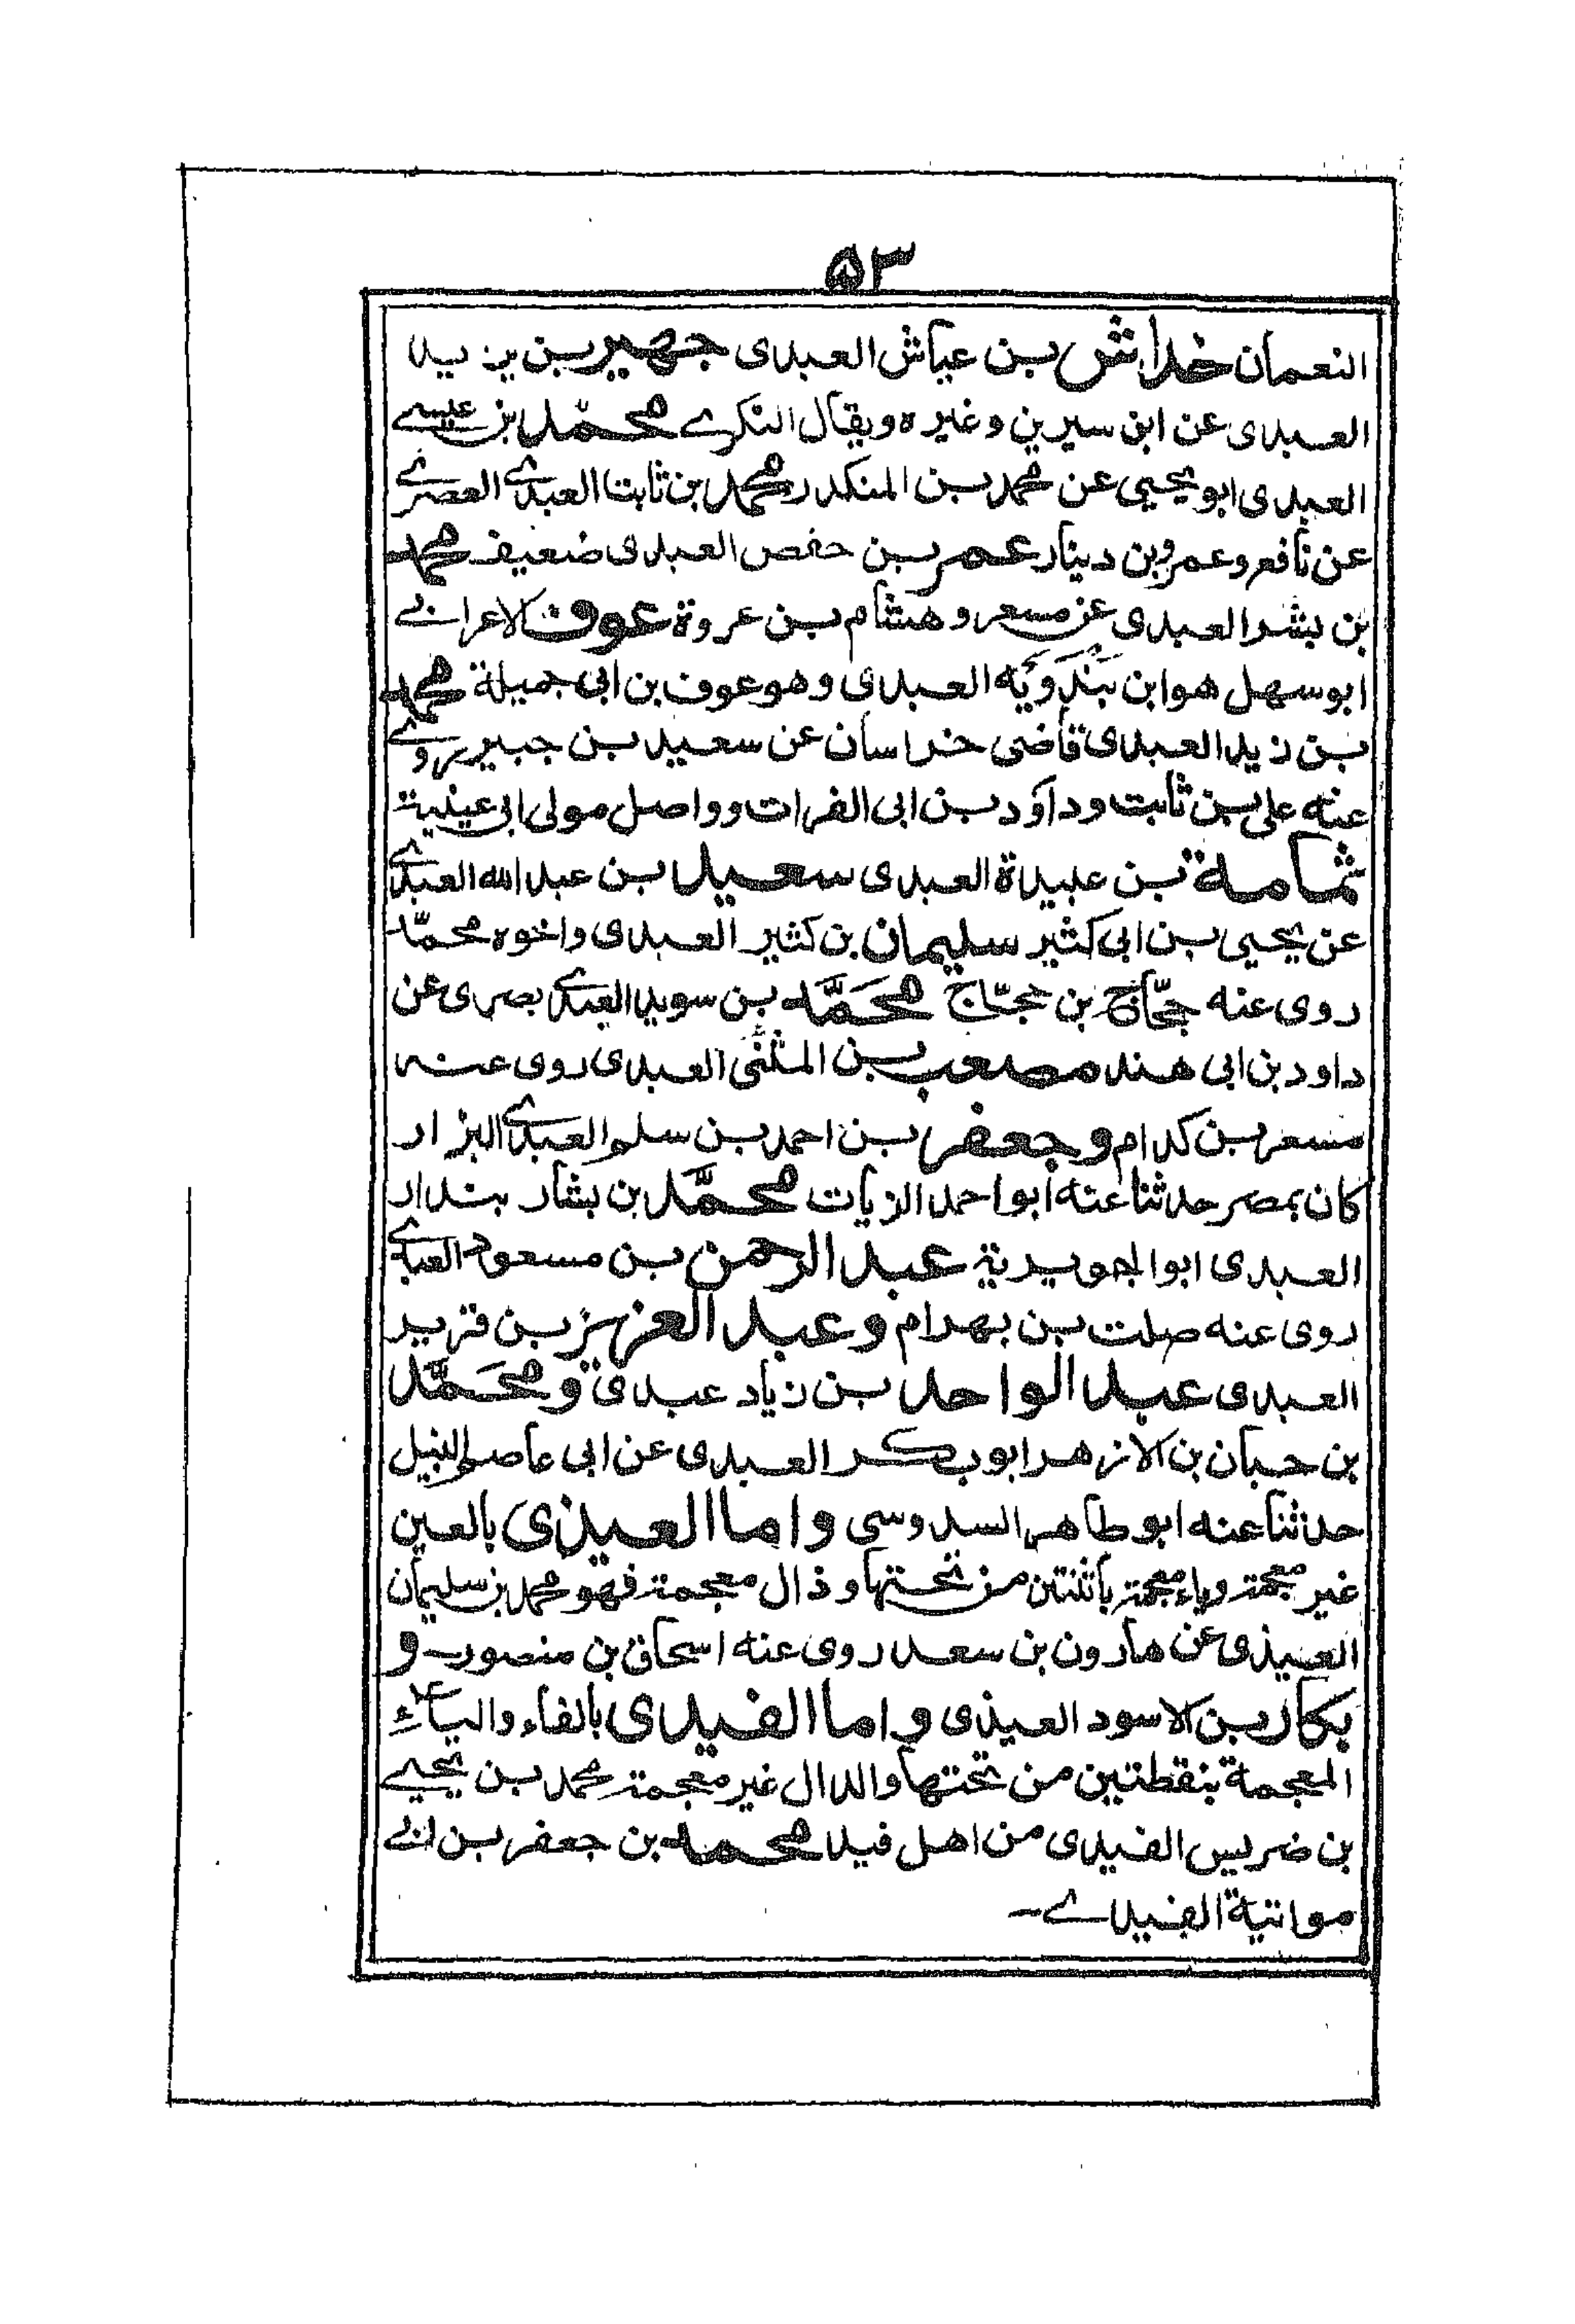 ۵۳
النعمان خداش بن عياش العبدى جهير بن يزيد
العبدى عن ابن سيرين وغيره ويقال النكرے محمّد ابن عيسے
العبدى ابو يحيى عن محمد بن المنكدر محمد بن ثابت العبدے العصرے
عن نافع وعمرو بن دينار عمر بن حفص العبدى ضعيف محمد
بن بشر العبدى عن مسعر وهشام بن عروة عوف الاعرابے
ابو سهل هو ابن بَنْدَوَيْه العبدى وهو عوف بن ابى جميلة محمد
بن زيد العبدى قاضى خراسان عن سعيد بن جبير روے
عنه على بن ثابت وداؤد بن ابى الفرات وواصل مولى ابى عيينة
ثمامة بن عبيدة العبدى سعيد بن عبد الله العبدے
عن يحيى بن ابى كثير سليمان بن كثير العبدى واخوه محمّد
روى عنه حجّاج بن حجّاج محَمَّد بن سويد العبدے بصرى عن
داود بن ابى هند مصعب بن المثنّى العبدى روى عنه
مسعر بن كدام وجعفر بن احمد بن سلم العبدے البزار
كان بمصر حدثنا عنه ابو احمد الزيات محمَّد بن بشار بندار
العبدى ابو الجويرية عبد الرحمن بن مسعود العبدے
روى عنه صلت بن بهرام وعبد العزيز بن قرير
العبدى عبد الواحد بن زياد عبدى ومحَمَّد
بن حبان بن الازهر ابو بكر العبدى عن ابى عاصم النبيل
حدثنا عنه ابو طاهر السدوسى واما العيذى بالعين
غير معجمة وياء معجمة باثنتين من تحتها وذال معجمة فهو محمد بن سليمان
العيذى عن هارون بن سعد روى عنه اسحاق بن منصور و
بكار بن الاسود العيذى واما الفيدى بالفاء والياء
المعجمة بنقطتين من تحتها والدال غير معجمة محمد بن يحيے
بن ضريس الفيدى من اهل فيد محمد بن جعفر بن ابے
مواتية الفيدے